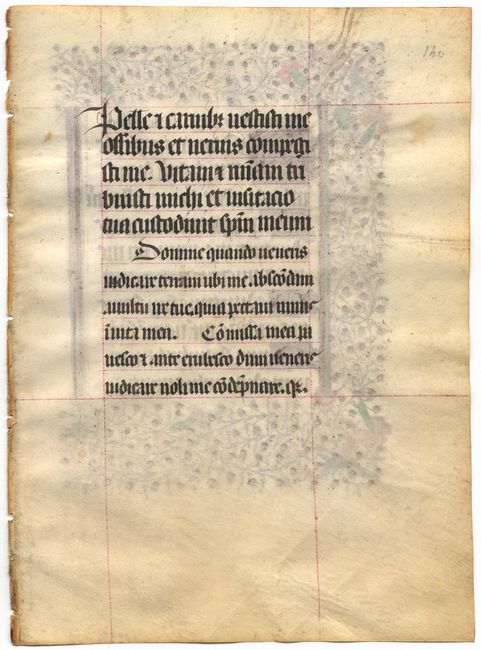 Pelle ⁊ carnibꝫ uestisti me
ossibus et neruis compegi
sti me. Vitam ⁊ mi̅am tri
buisti michi et uisitacio
tua custodiuit sp̅m meum
Domine quando ueneris
iudicare terram ubi me absco̅dam
auultu ire tue. quia peccaui nimis
in uita mea. Co̅missa mea pa
uesco ⁊ ante erubesco dum ueneris
iudicare noli me co̅de̅pnare.